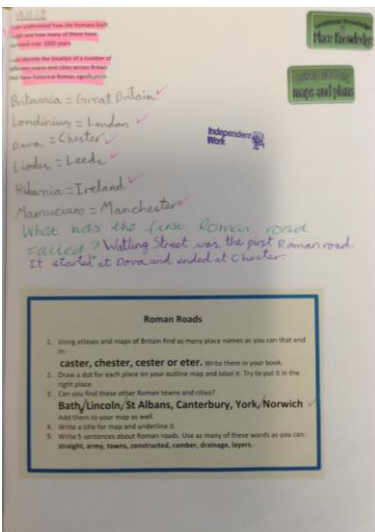 understand how the Romans built
and how many of these have
over 2000 years.
identify the location of a number of
different towns and cities across Britain
that have historical Roman significance.
Locational Knowledge
Place Knowledge
maps and plans
Independent
Work
Britannia = Great Britain
Londinium = London
= Chester
= Leeds
Hibernia = Ireland
Mamucium = Manchester
What was the first Roman road
called? Watling Street was the first Roman road
It started at Dova and ended at Chester.
Roman Roads
1. Using atlases and maps of Britain find as many place names as you can that end
in:
caster, chester, cester or eter. Write them in your book.
2. Draw a dot for each place on your outline map and label it. Try to put it in the
right place.
3. Can you find these other Roman towns and cities?
Bath, Lincoln, St Albans, Canterbury, York, Norwich
Add them to your map as well.
4. Write a title for map and underline it.
5. Write 5 sentences about Roman roads. Use as many of these words as you can:
straight, army, towns, constructed, camber, drainage, layers.